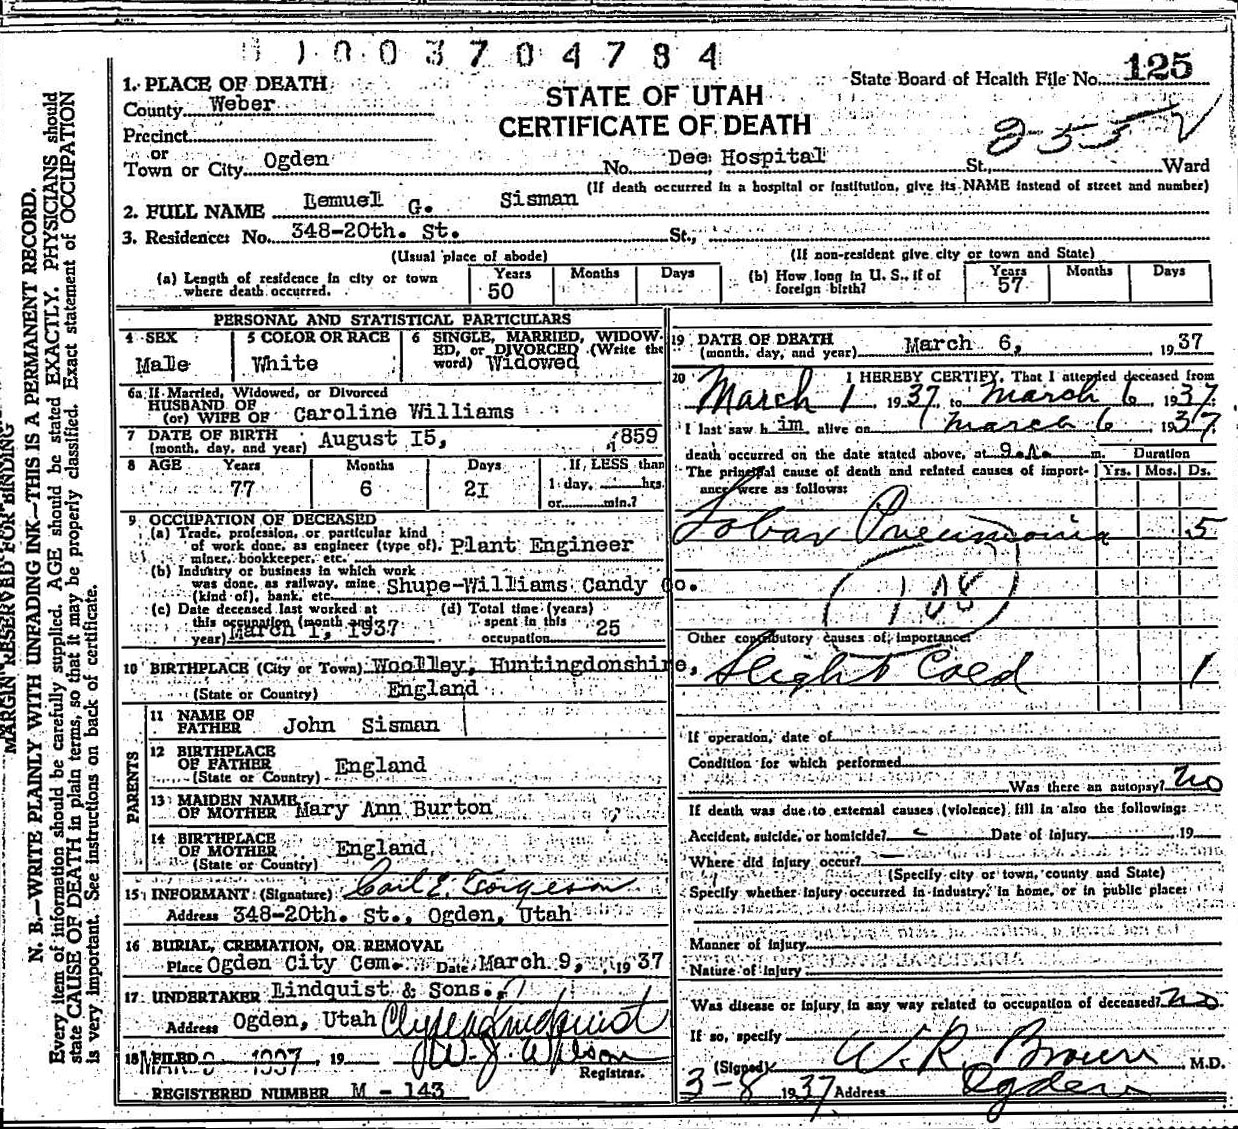 1003704784
State Board of Health File No. 125
STATE OF UTAH
CERTIFICATE OF DEATH
2552
1. PLACE OF DEATH
County Weber
Precinct
or
Town or City Ogden No. Dee Hospital St., Ward
(If death occurred in a hospital or institution, give its NAME instead of street and number)
2. FULL NAME Lemuel G. Sisman
3. Residence: No. 348-20th. St. St.,
(Usual place of abode) (If non-resident give city or town and State)
(a) Length of residence in city or town where death occurred. Years 50 Months Days
(b) How long in U. S., if of foreign birth? Years 57 Months Days
PERSONAL AND STATISTICAL PARTICULARS
4 SEX Male
5 COLOR OR RACE White
6 SINGLE, MARRIED, WIDOWED, or DIVORCED (Write the word) Widowed
6a If Married, Widowed, or Divorced
HUSBAND OF
(or) WIFE OF Caroline Williams
7 DATE OF BIRTH (month, day, and year) August I5, 1859
8 AGE Years 77 Months 6 Days 2I If LESS than 1 day, hrs. or min.?
9 OCCUPATION OF DECEASED
(a) Trade, profession, or particular kind of work done, as engineer (type of), miner, bookkeeper, etc. Plant Engineer
(b) Industry or business in which work was done, as railway, mine (kind of), bank, etc. Shupe-Williams Candy Co.
(c) Date deceased last worked at this occupation (month and year) March 1, 1937
(d) Total time (years) spent in this occupation 25
10 BIRTHPLACE (City or Town) Woolley, Huntingdonshire,
(State or Country) England
PARENTS
11 NAME OF FATHER John Sisman
12 BIRTHPLACE OF FATHER (State or Country) England
13 MAIDEN NAME OF MOTHER Mary Ann Burton
14 BIRTHPLACE OF MOTHER (State or Country) England
15 INFORMANT: (Signature) Carl E. Torgeson
Address 348-20th. St., Ogden, Utah
16 BURIAL, CREMATION, OR REMOVAL
Place Ogden City Cem. Date March 9, 1937
17 UNDERTAKER Lindquist & Sons.
Address Ogden, Utah Clyde Lindquist
18 FILED MAR 9 1937, 19 W. J. Wilson
Registrar.
REGISTERED NUMBER M - 143
19 DATE OF DEATH (month, day, and year) March 6, 1937
20 I HEREBY CERTIFY, That I attended deceased from
March 1, 1937, to March 6, 1937
I last saw him alive on March 6, 1937
death occurred on the date stated above, at 9 a. m. Duration
The principal cause of death and related causes of importance were as follows: Yrs. Mos. Ds.
Lobar Pneumonia 5
108
Other contributory causes of importance:
Slight Cold 1
If operation, date of
Condition for which performed
Was there an autopsy? no
If death was due to external causes (violence) fill in also the following:
Accident, suicide, or homicide? Date of injury 19
Where did injury occur?
(Specify city or town, county and State)
Specify whether injury occurred in industry, in home, or in public place:
Manner of injury
Nature of injury
Was disease or injury in any way related to occupation of deceased? no
If so, specify
(Signed) W. R. Brown M.D.
3-8 1937 Address Ogden
MARGIN RESERVED FOR BINDING
N. B.—WRITE PLAINLY WITH UNFADING INK—THIS IS A PERMANENT RECORD.
Every item of information should be carefully supplied. AGE should be stated EXACTLY. PHYSICIANS should
state CAUSE OF DEATH in plain terms, so that it may be properly classified. Exact statement of OCCUPATION
is very important. See instructions on back of certificate.